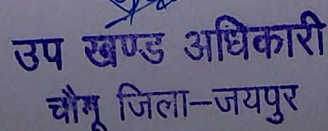 उप खण्ड अधिकारी
चौमू जिला-जयपुर